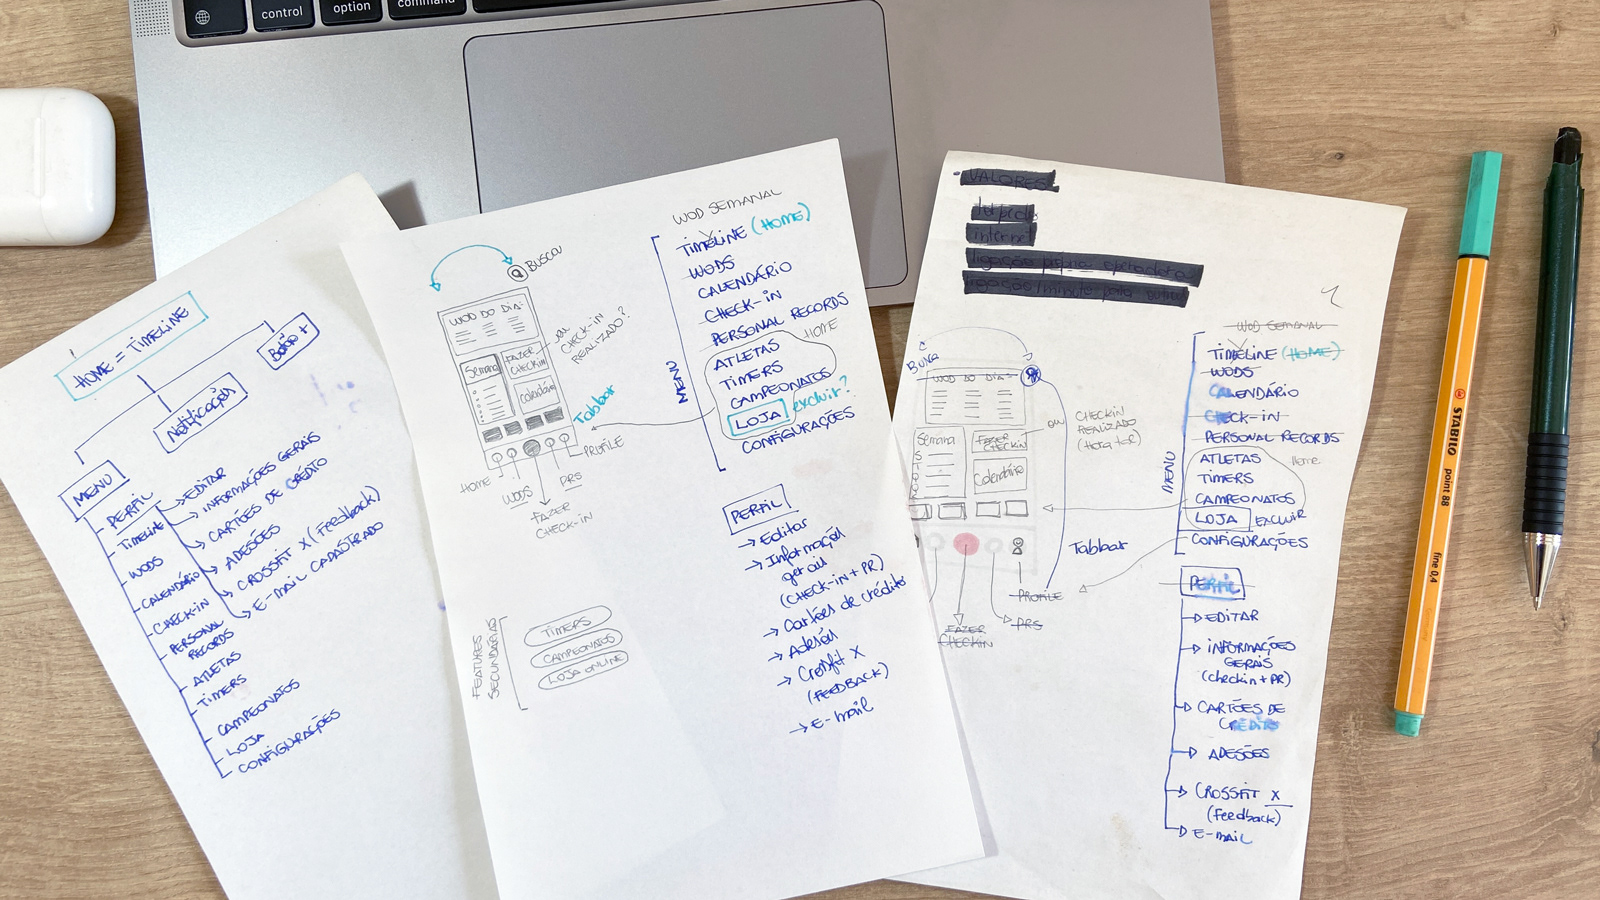 control
option
command
HOME = TIMELINE
Botão +
Notificações
MENU
PERFIL
EDITAR
INFORMAÇÕES GERAIS
CARTÕES DE CRÉDITO
ADESÕES
CROSSFIT X (feedback)
E-MAIL CADASTRADO
TIMELINE
WODS
CALENDÁRIO
CHECK-IN
PERSONAL
RECORDS
ATLETAS
TIMERS
CAMPEONATOS
LOJA
CONFIGURAÇÕES
BUSCA
WOD DO DIA
Semana
FAZER
CHECKIN
Calendário
OU
CHECK-IN
REALIZADO?
Tabbar
PROFILE
HOME
WODS
PRS
FAZER
CHECK-IN
FEATURES
SECUNDÁRIAS
TIMERS
CAMPEONATOS
LOJA ONLINE
WOD SEMANAL
MENU
TIMELINE (HOME)
WODS
CALENDÁRIO
CHECK-IN
PERSONAL RECORDS
HOME
ATLETAS
TIMERS
CAMPEONATOS
LOJA excluir?
CONFIGURAÇÕES
PERFIL
Editar
(CHECK-IN + PR)
Cartões de créditos
Crossfit X
(FEEDBACK)
E-mail
VALORES
internet
Busca
WOD DO DIA
Semana
FAZER
CHECKIN
Calendário
OU
CHECKIN
REALIZADO
Tabbar
PROFILE
PRS
FAZER
CHECKIN
WOD SEMANAL
MENU
TIMELINE (HOME)
WODS
CALENDÁRIO
CHECK-IN
PERSONAL RECORDS
ATLETAS
Home
TIMERS
CAMPEONATOS
LOJA EXCLUIR
CONFIGURAÇÕES
PERFIL
EDITAR
INFORMAÇÕES
GERAIS
(checkin + PR)
CARTÕES DE
CRÉDITO
ADESÕES
CROSSFIT X
(feedback)
E-MAIL
STABILO
point 88
fine 0,4